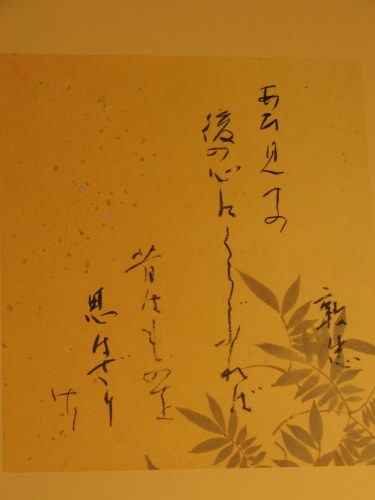 敦忠
あひ見ての
後の心にくらぶれば
昔はものを
思はざり
けり